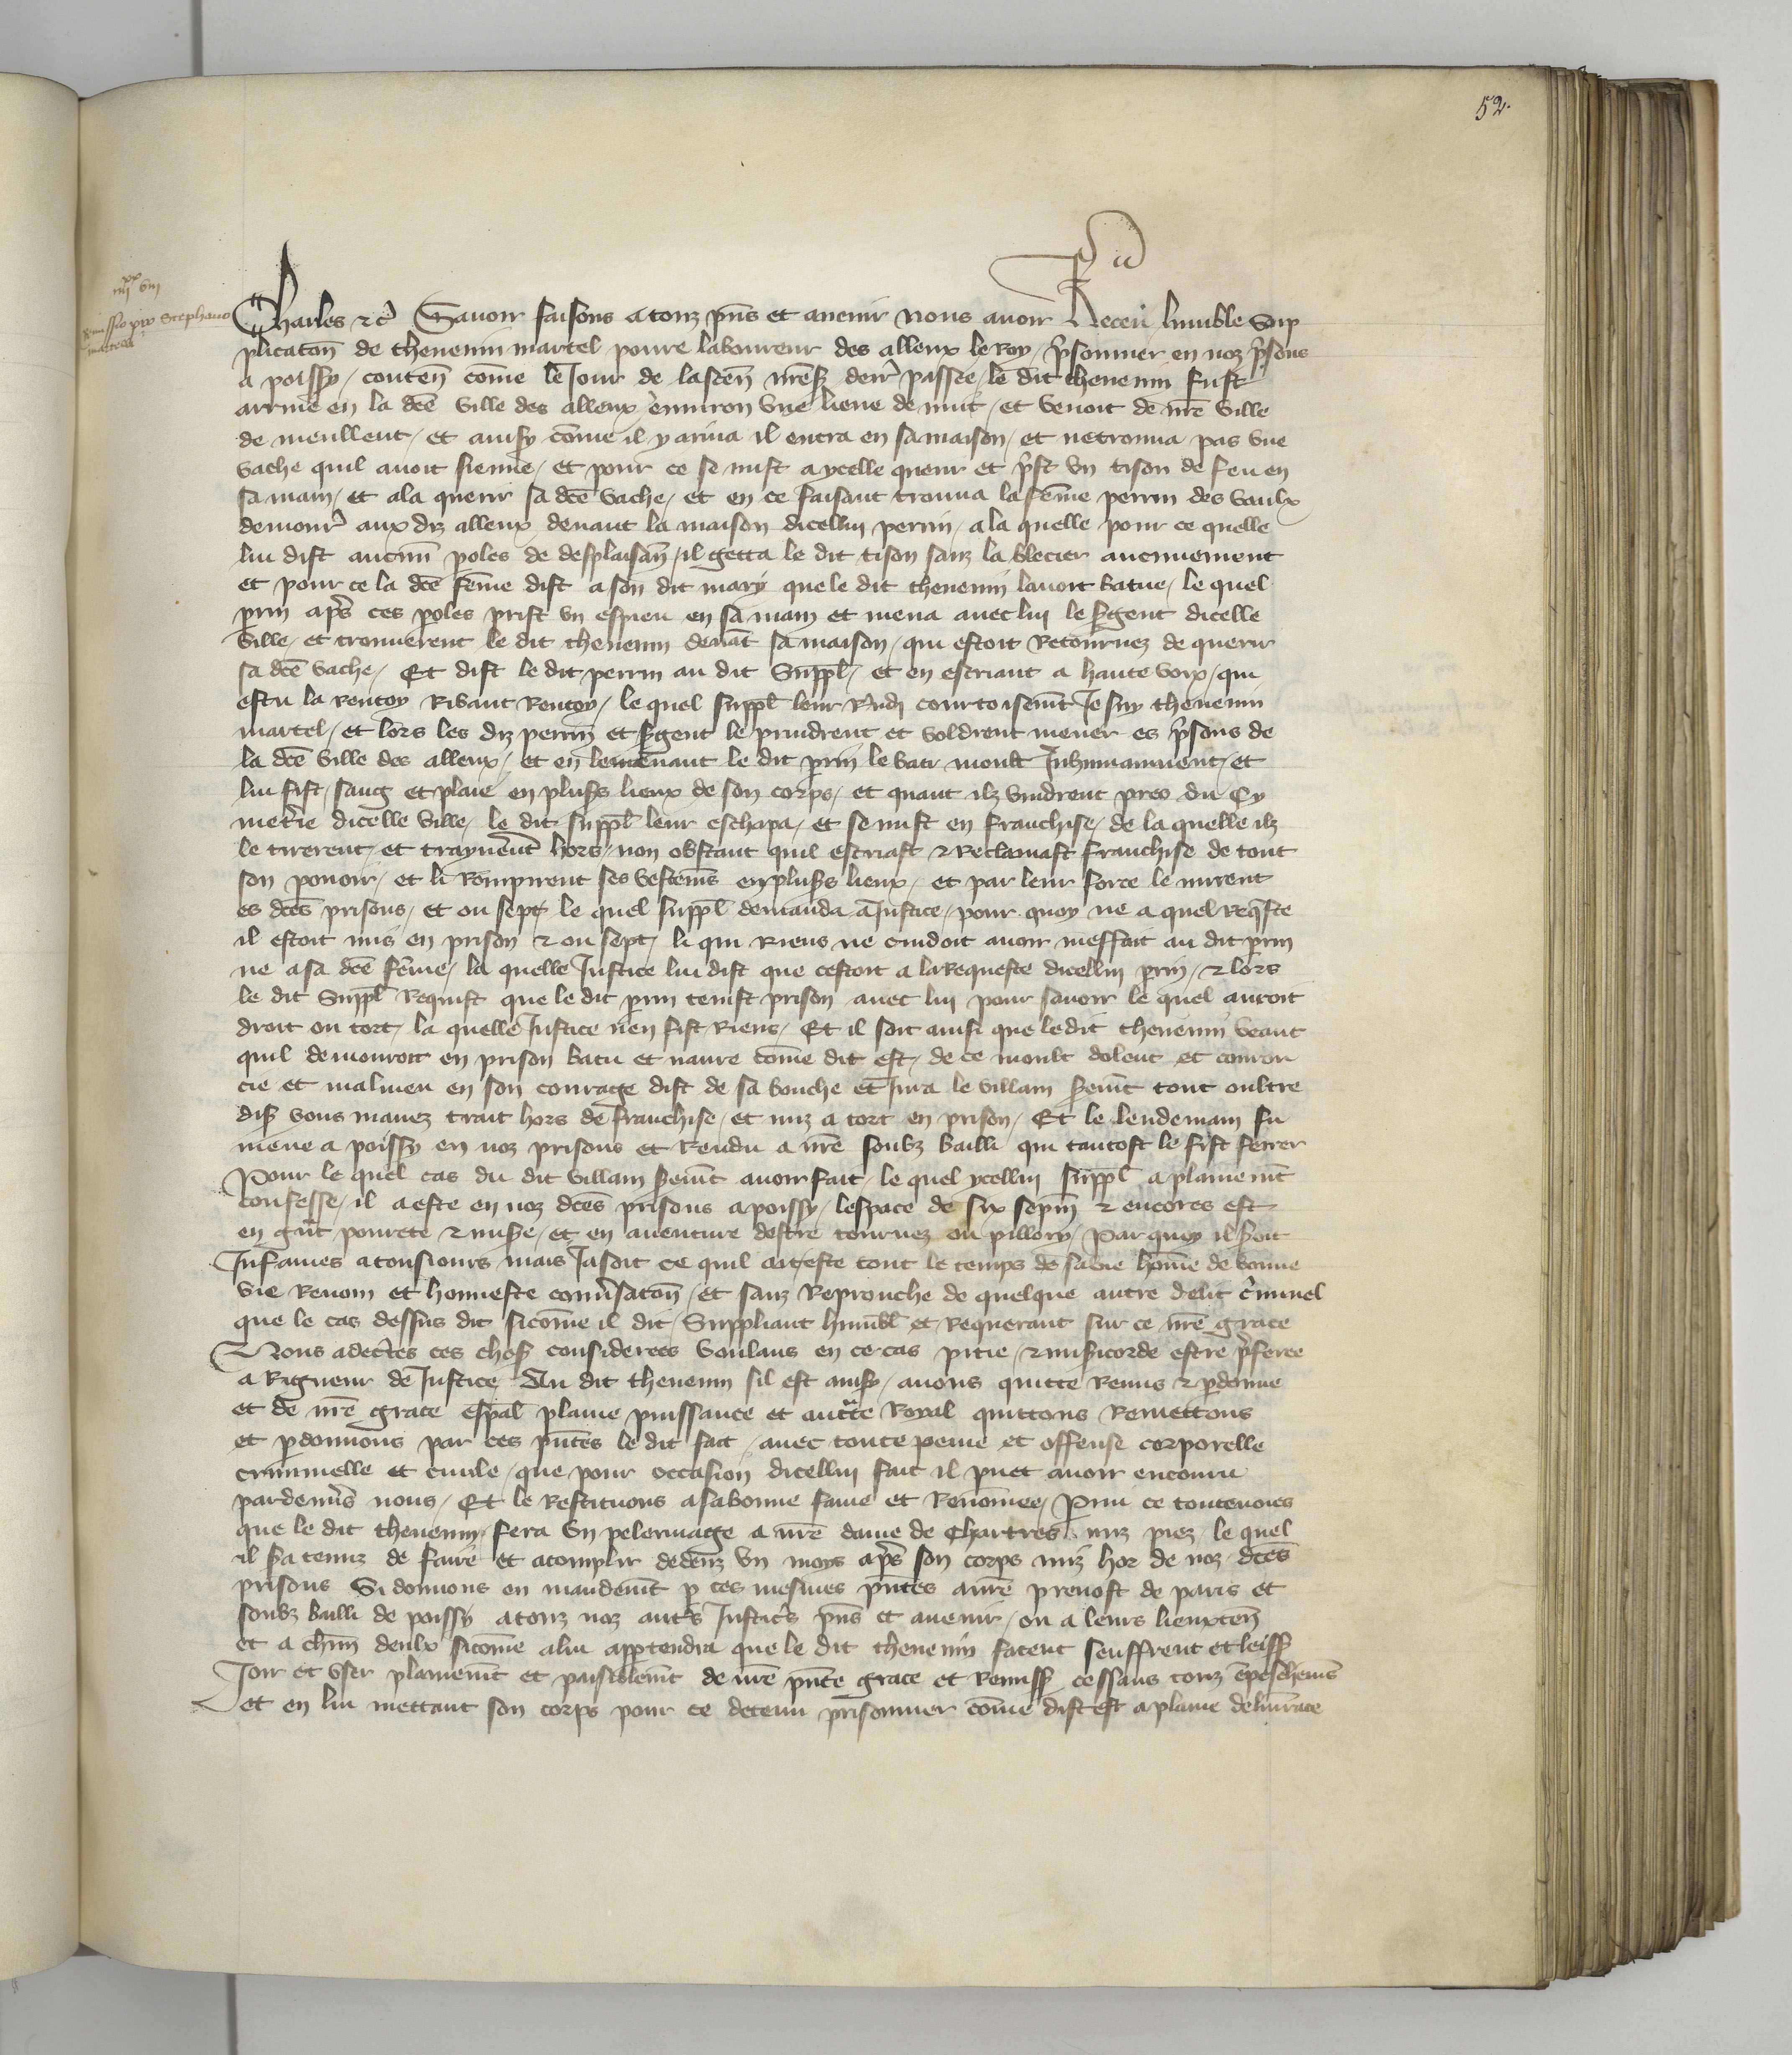 52.
iiij xx viij
Remissio pro Stephano
martel
Charles etc̃ Sauoir faisons a touz pñs et auenir nous auoir Receu lumble Sup
plicatoñ de theuenin martel poure laboureur des alleux le Roy / p̃sonnier en noz p̃sons
a poissy / conteñ cõme le Jour de lasceñ nr̃eSʳ derr̃ passee / le dit theuenin fust
arriue en la dcẽ ville des alleux / enuiron vne lieue de nuit / et venoit de nr̃e ville
de meullent / et ainsy cõme il y ariua il entra en sa maison / et ne trouua pas vne
vache quil auoit sienne / et pour ce se mist a ycelle querir et p̃st vn tison de feu en
sa main / et ala querir sa dcẽ vache / et en ce faisant trouua la fẽme perrin des vaulx
demour̃ aux diz alleux / deuant la maison dicellui perrin / a la quelle pour ce quelle
lui dist aucuñ poles de desplaisañ / il getta le dit tison sanz la blecier aucunement
et pour ce la dcẽ fẽme dist a son dit mary que le dit theuenin lauoit batue / le quel
prin ap̃s ces poles prist vn espieu en sa main et mena auec lui le sʳgent dicelle
ville / et trouuerent le dit theuenin deuãt sa maison / qui estoit Retournez de querir
sa dcẽ vache / Et dist le dit perrin au dit Suppl̃ / et en escriant a haute voix / qui
estu la rentoy Ribaut Rentoy / le quel suppl̃ leur Rñdj courtoisemñt Je suy theuenin
martel / et lors les diz perrin et sʳgent le prindrent et voldrent mener es p̃sons de
la dcẽ ville des alleux / et en lemenant le dit prin le bati moult Jnhumainnement / et
lui fist / sang et plaie en plusʳs lieux de son corps / et quant ilz vindrent pres du Cy
metiẽre dicelle ville / le dit suppl̃ leur eschapa / et se mist en franchise / de la quelle ilz
le tirerent / et traynerẽnt hors / non obstant quil escriast et Reclamast franchise de tout
son pouoir / et li Rompirent ses vestemñs en plusʳs lieux / et par leur force le mirent
es dcẽs prisons / et ou sept / le quel suppl̃ demanda a Justice / pour quoy ne a quel Req̃ste
il estoit mis en prison et ou sept / li qui Riens ne cuidoit auoir meffait au dit prin
ne a sa dcẽ fẽme / la quelle Justice lui dist que cestoit a la Requeste dicellui prin / et lors
le dit Suppl̃ Requist que le dit prin tenist prison auec lui pour sauoir le quel auroit
droit ou tort / la quelle Justice nen fist Riens / Et il soit ainsi que le dit theuenin veant
quil demouroit en prison batu et naure cõme dit est / de ce moult dolent et courrou
cie et malmeu en son courrage dist de sa bouche et Jura le villain sʳemñt tout oultre
disʳ vous mauez trait hors de franchise / et miz a tort en prison / Et le lendemain fu
mene a poissy en noz prisons et Rendu a nr̃e soubz bailli qui tantost le fist ferrer
Pour le quel cas du dit villain sʳemñt auoir fait / le quel ycellui suppl̃ a plainemñt
confesse / il a este en noz dcẽs prisons a poissy / lespace de six sepmñ et encores est
en gr̃nt pourete et misʳe / et en auenture destre tournez ou pillory / Par quoy il sʳoit
Jnfames a tousiours mais Ja soit ce quil ait este tout le temps de sa vie hõme de bonne
vie Renom et honneste conuʳsatoñ / et sanz Reprouche de quelque autre delit c̃minel
que le cas dessus dit sicõme il dit / Suppliant humbl̃ et Requerant sur ce nr̃e grace
Nous adecer̃tes ces chosʳ considerees voulans en ce cas pitie / et misʳicorde estre p̃feree
a Rigueur de Justice Au dit theuenin sil est ainsy / auons quitte Remis et pdonne
et de nr̃e grace espal̃ plaine puissance et auctr̃te Royal quittons Remettons
et pdonnons par ces pñtes le dit fait / auec toute peine et offense corporelle
criminelle et ciuile / que pour occasion dicellui fait il puet auoir encouru
pardeuʳs nous / Et le Restituons a sa bonne fame et Renõmee / Pmi ce toutenoies
que le dit theuenin fera vn pelerinage a nr̃e dame de Chartres nuz piez / le quel
il sʳa tenuz de faire et acomplir dedenz vn moys ap̃s son corps miz hor de noz dcẽs
prisons Si donnons en mandemñt p ces mesmes pñtes au nr̃e preuost de paris et
soubz bailli de poissy a touz noz autr̃s Justicr̃s pñs et auenir / ou a leurs lieuxteñ
et a chũn deulx sicõme a lui apptendra que le dit theuenin facent seuffrent et leissʳ
Joir et vser plainemñt et paisiblemñt de nr̃e pñte grace et Remissʳ cessans touz ẽpeschemñs
et en lui mettant son corps pour ce detenu prisonnier cõme dist est a plaine deliur̃ance